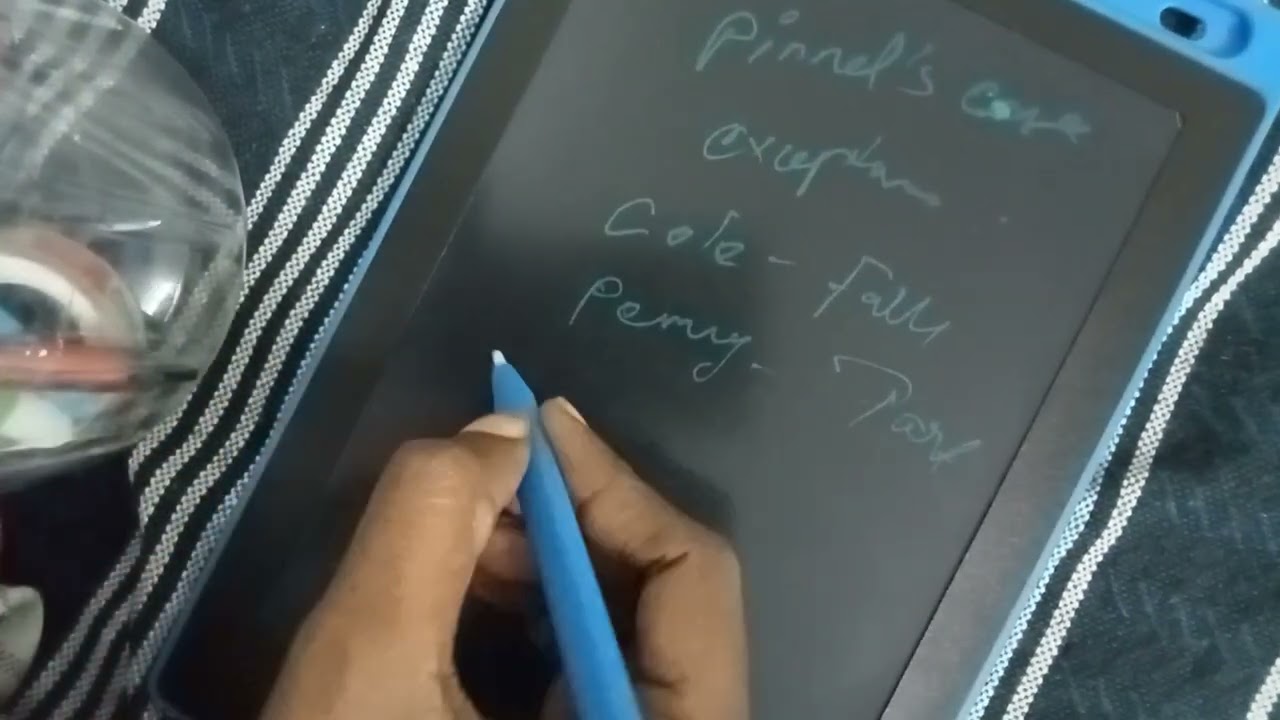 Pinnel's case
exception
Cole - Fully
Penny - Part